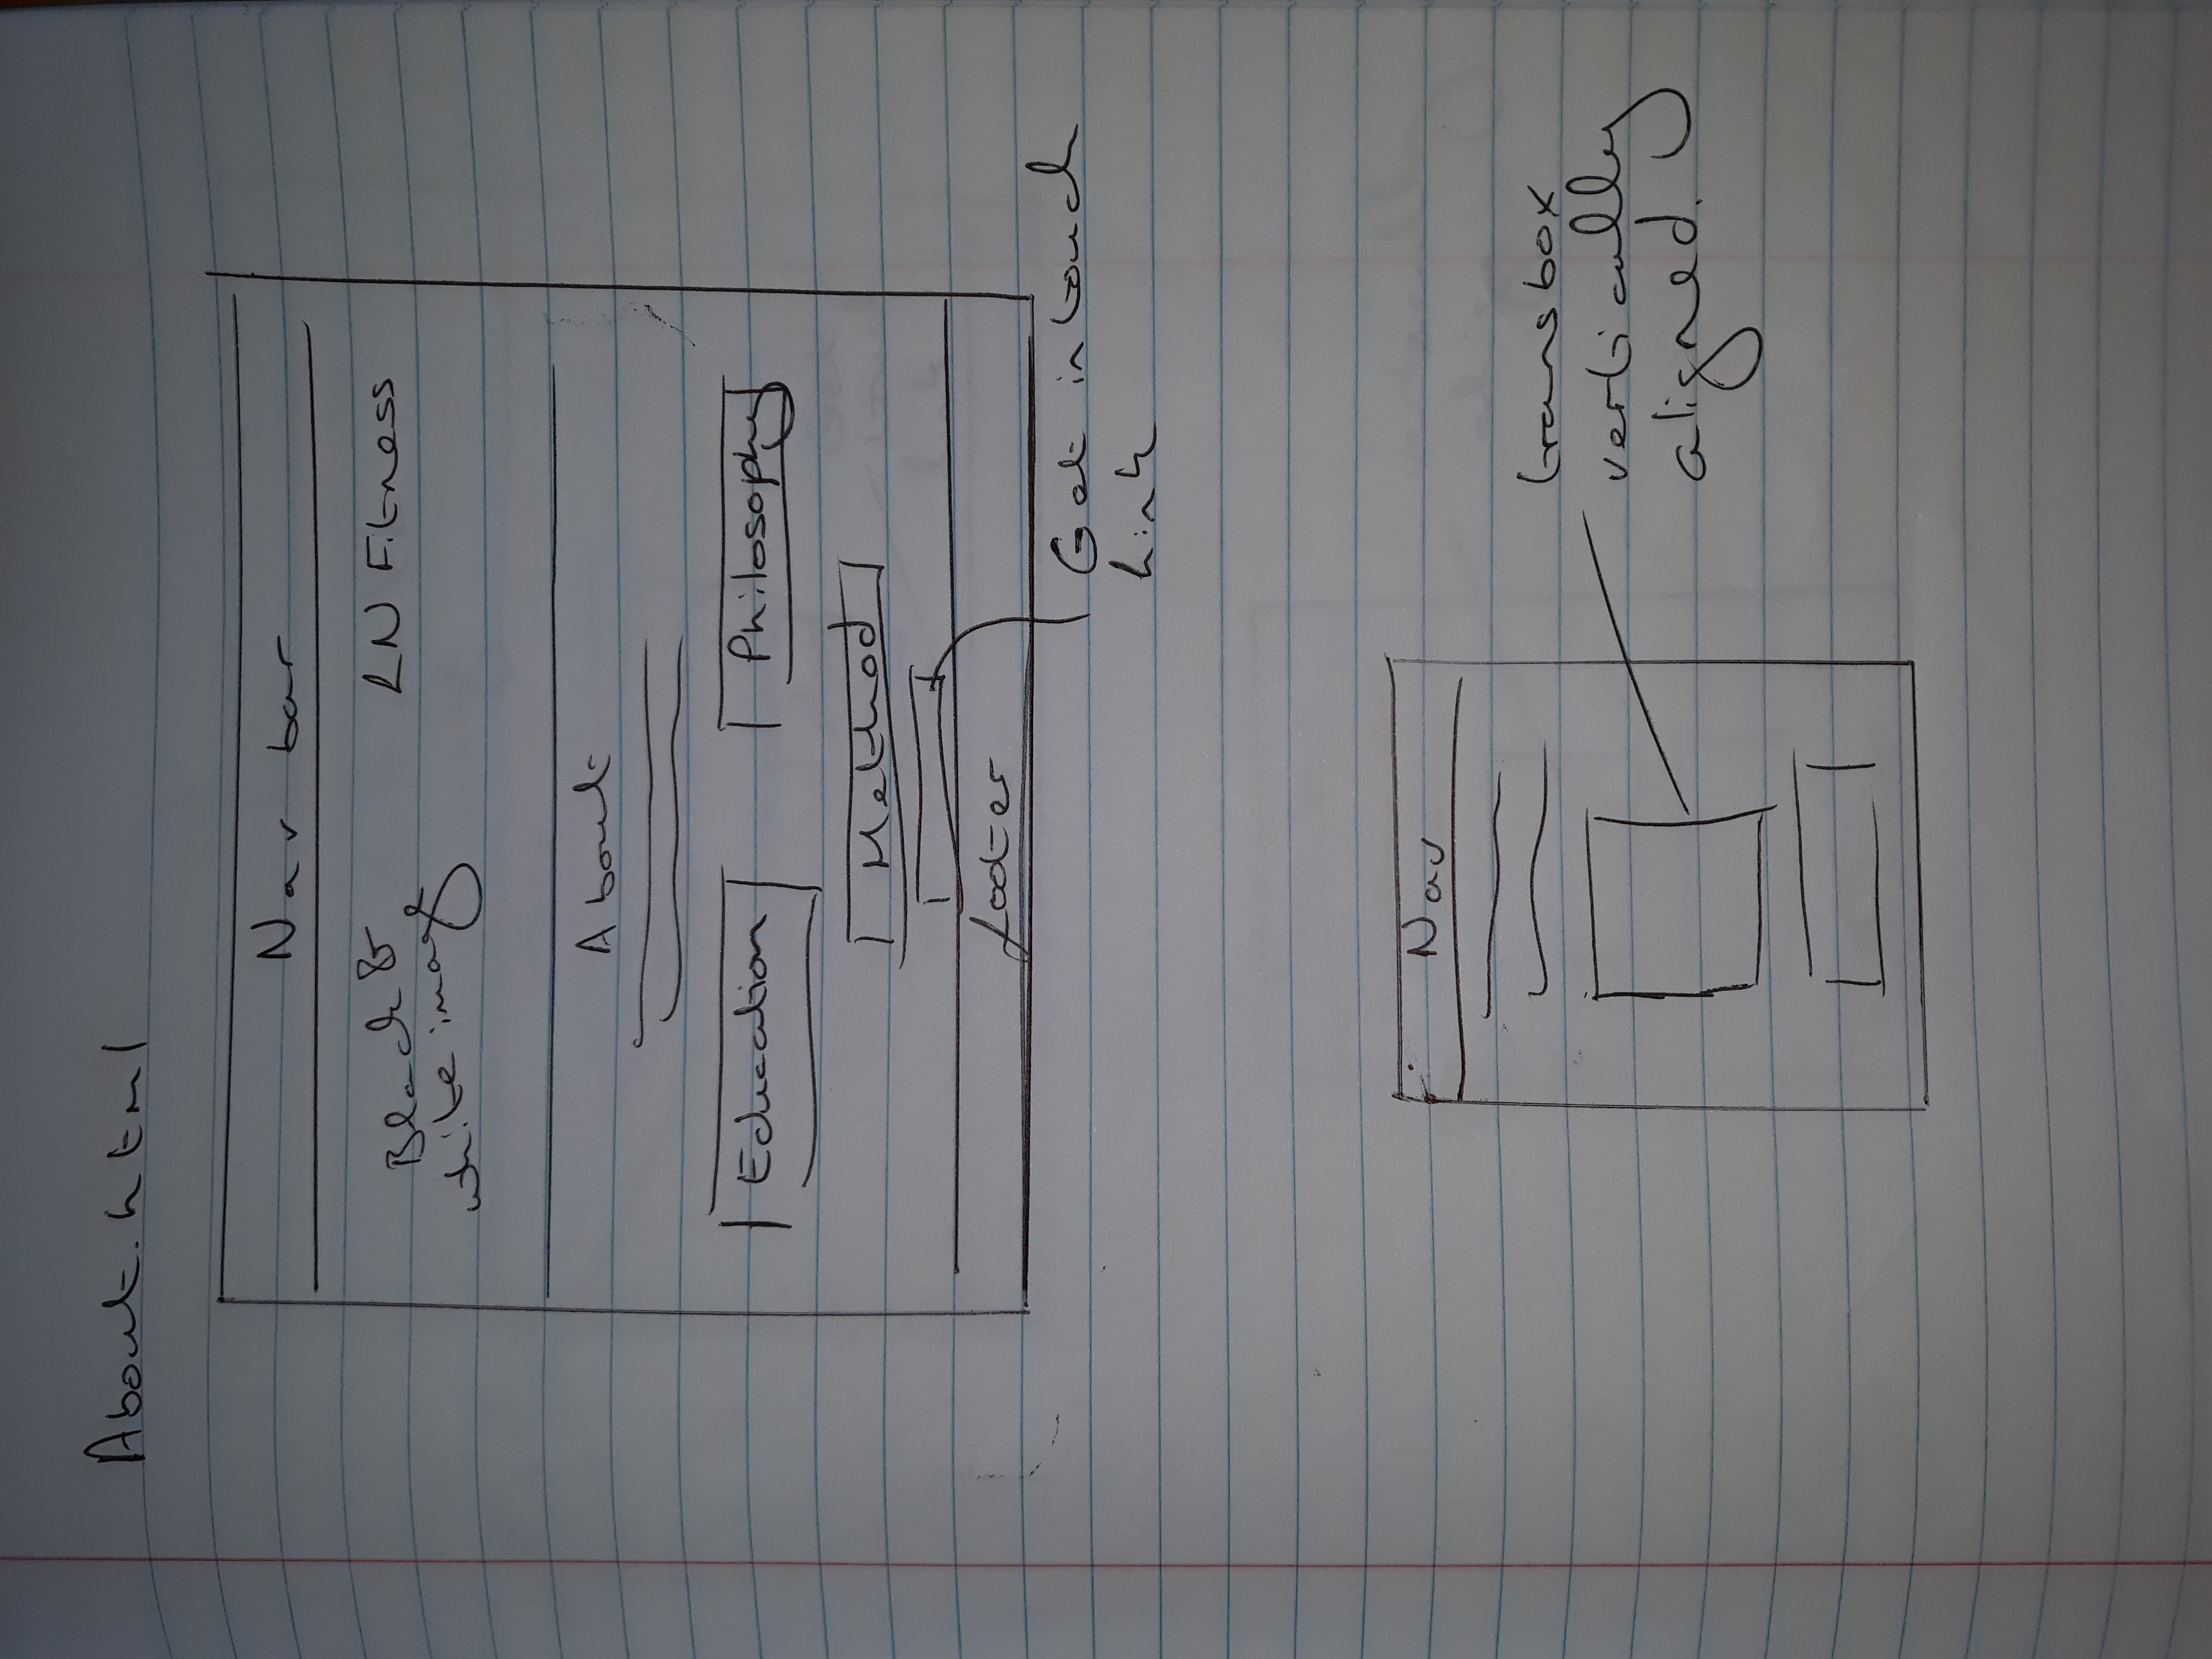 About.html
Nav bar
Black &
white image
LN Fitness
About
Education
Philosophy
Method
footer
Get in touch
Link
Nav
transbox
vertically
aligned.